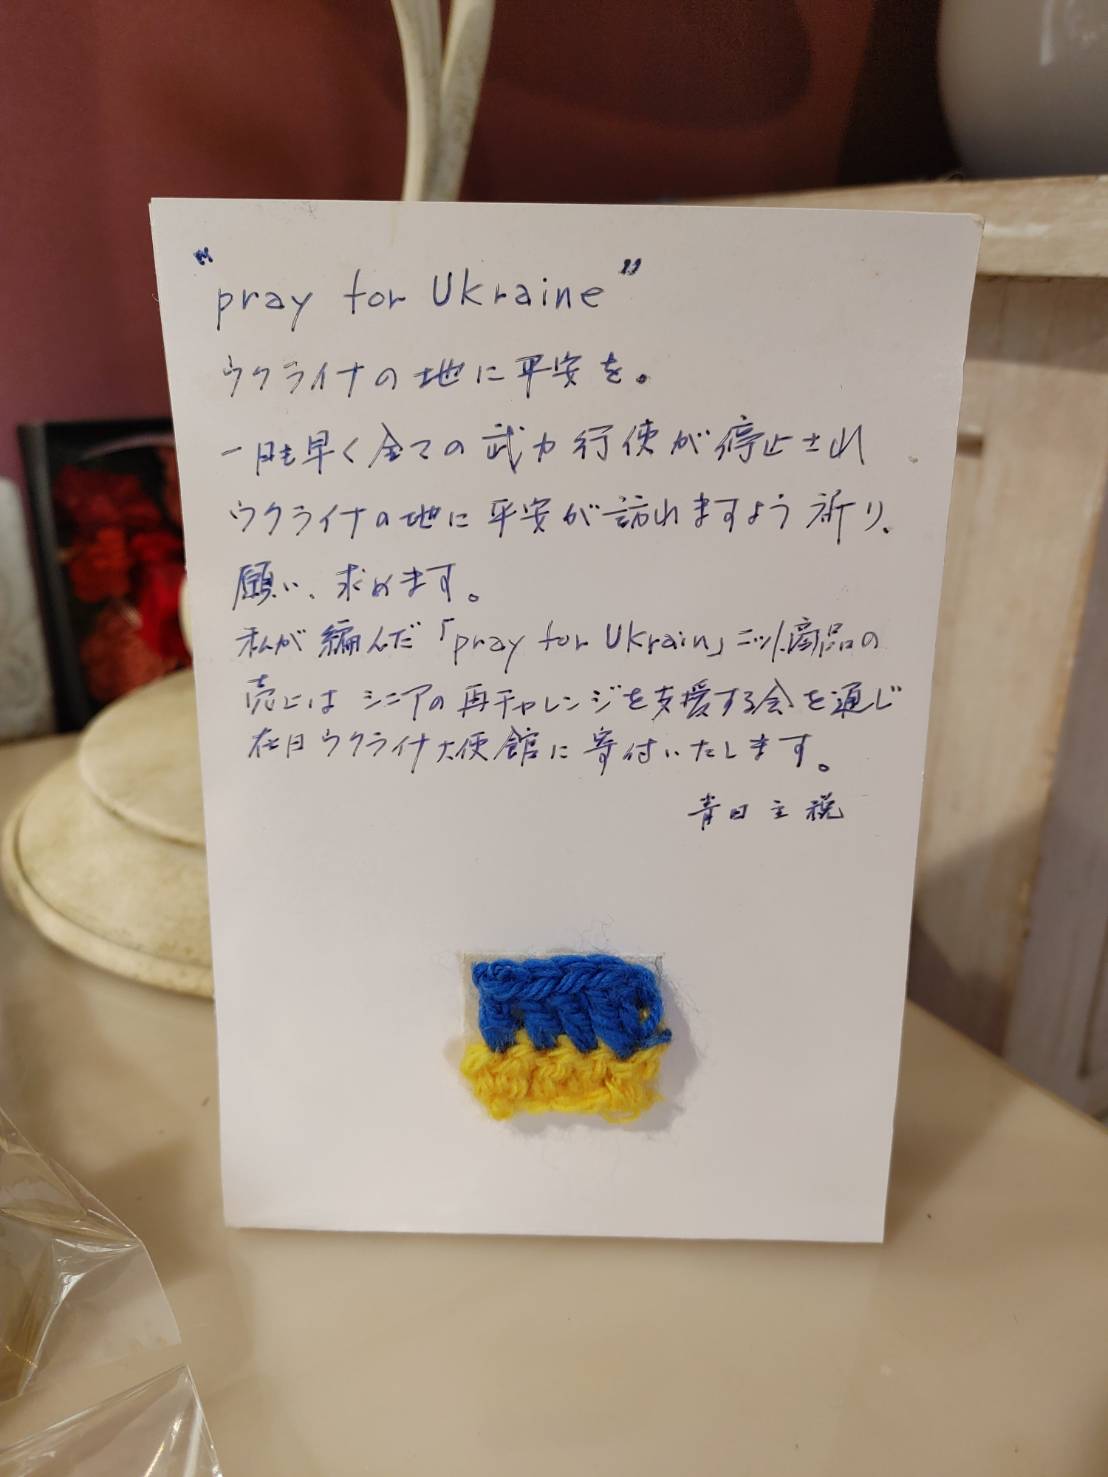 "pray for Ukraine"
ウクライナの地に平安を。
一日も早く全ての武力行使が停止され
ウクライナの地に平安が訪れますよう祈り、
願い、求めます。
私が編んだ「pray for Ukrain」ニット商品の
売上は シニアの再チャレンジを支援する会を通じ
在日ウクライナ大使館に寄付いたします。
青田主税